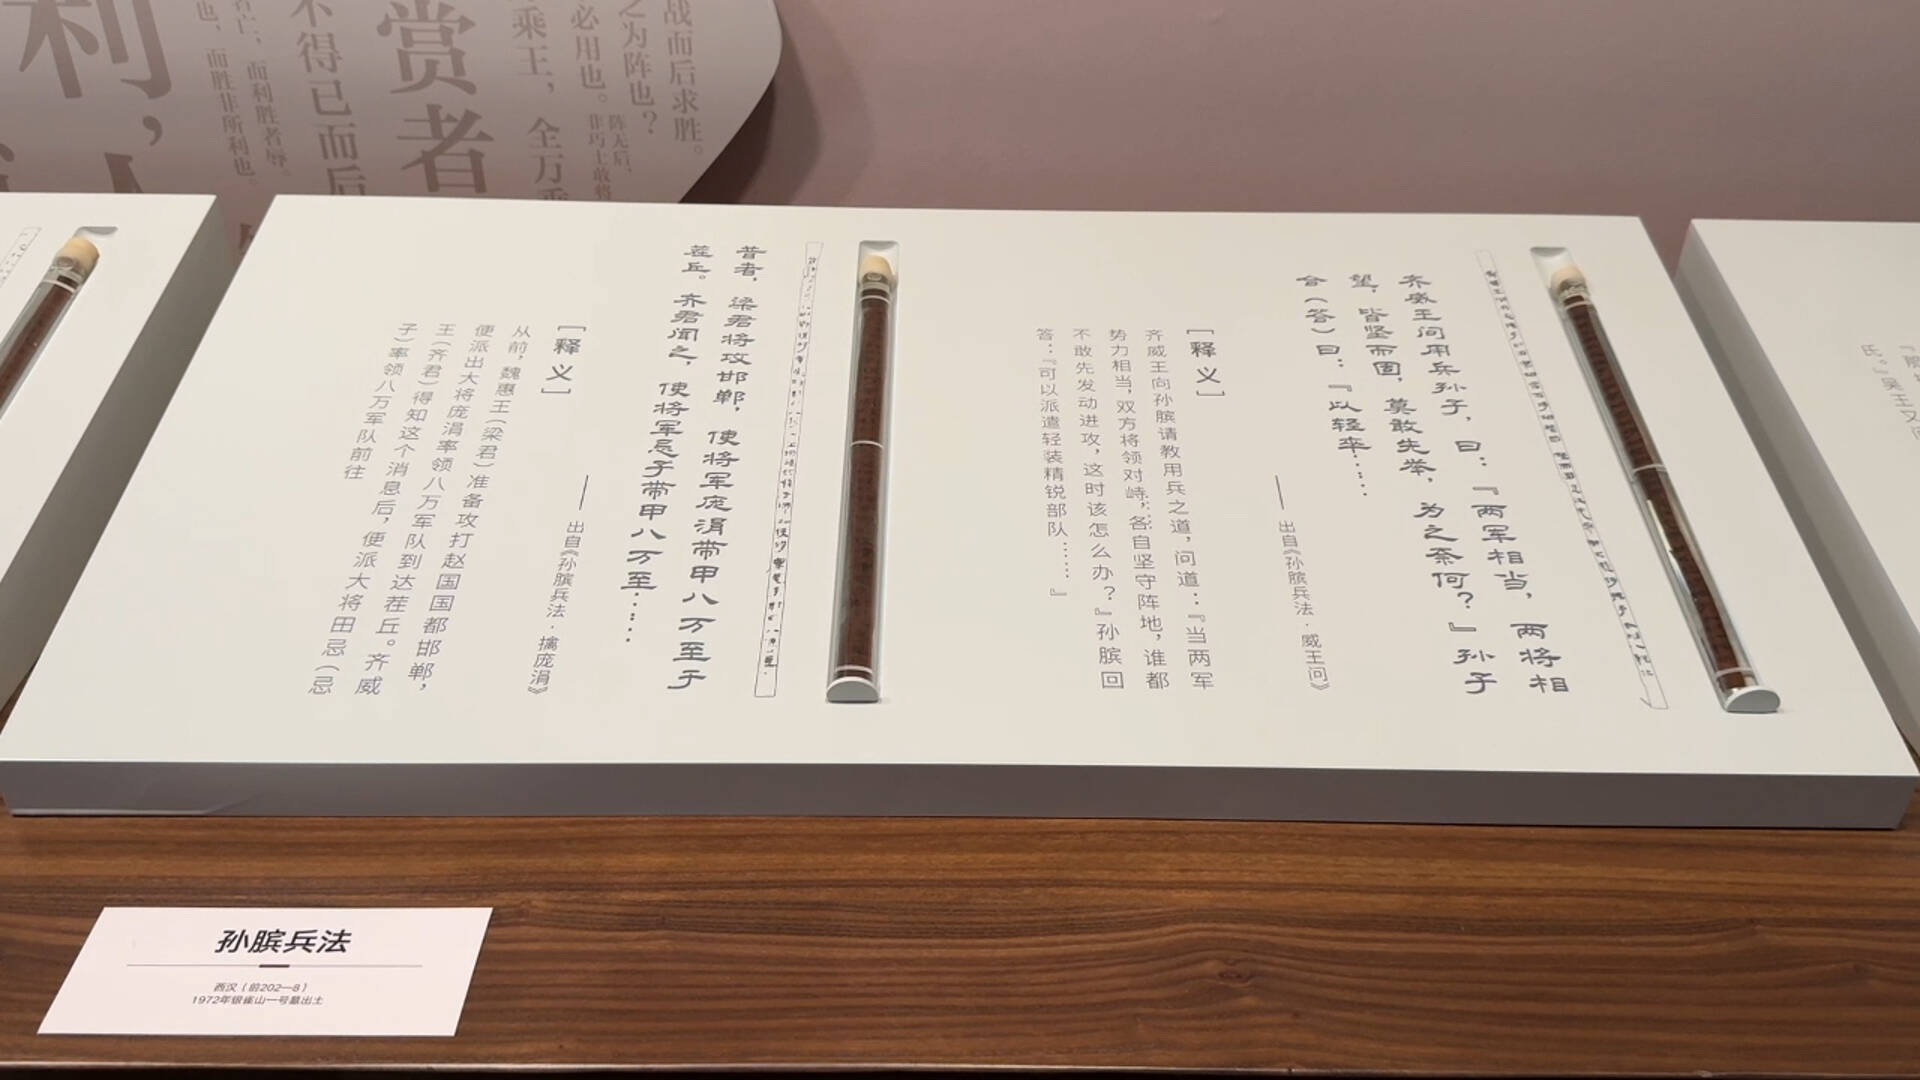 齐威王问用兵孙子，曰：『两军相当，两将相
望，皆坚而固，莫敢先举，为之奈何？』孙子
合（答）曰：『以轻卒……
——出自《孙膑兵法·威王问》
[释义]
齐威王向孙膑请教用兵之道，问道：『当两军
势力相当，双方将领对峙，各自坚守阵地，谁都
不敢先发动进攻，这时该怎么办？』孙膑回
答：『可以派遣轻装精锐部队……』
昔者，梁君将攻邯郸，使将军庞涓带甲八万至于
茬丘。齐君闻之，使将军忌子带甲八万至……
——出自《孙膑兵法·擒庞涓》
[释义]
从前，魏惠王（梁君）准备攻打赵国国都邯郸，
便派出大将庞涓率领八万军队到达茬丘。齐威
王（齐君）得知这个消息后，便派大将田忌（忌
子）率领八万军队前往
战而后求胜。
之为阵也？
阵无后，
非巧士敢将
必用也。
乘王，全万乘
赏者
不得已而后
亡，而利胜者辱。
也，而胜非所利也。
利，
氏。』吴王又问
孙膑兵法
西汉（前202—8）
1972年银雀山一号墓出土